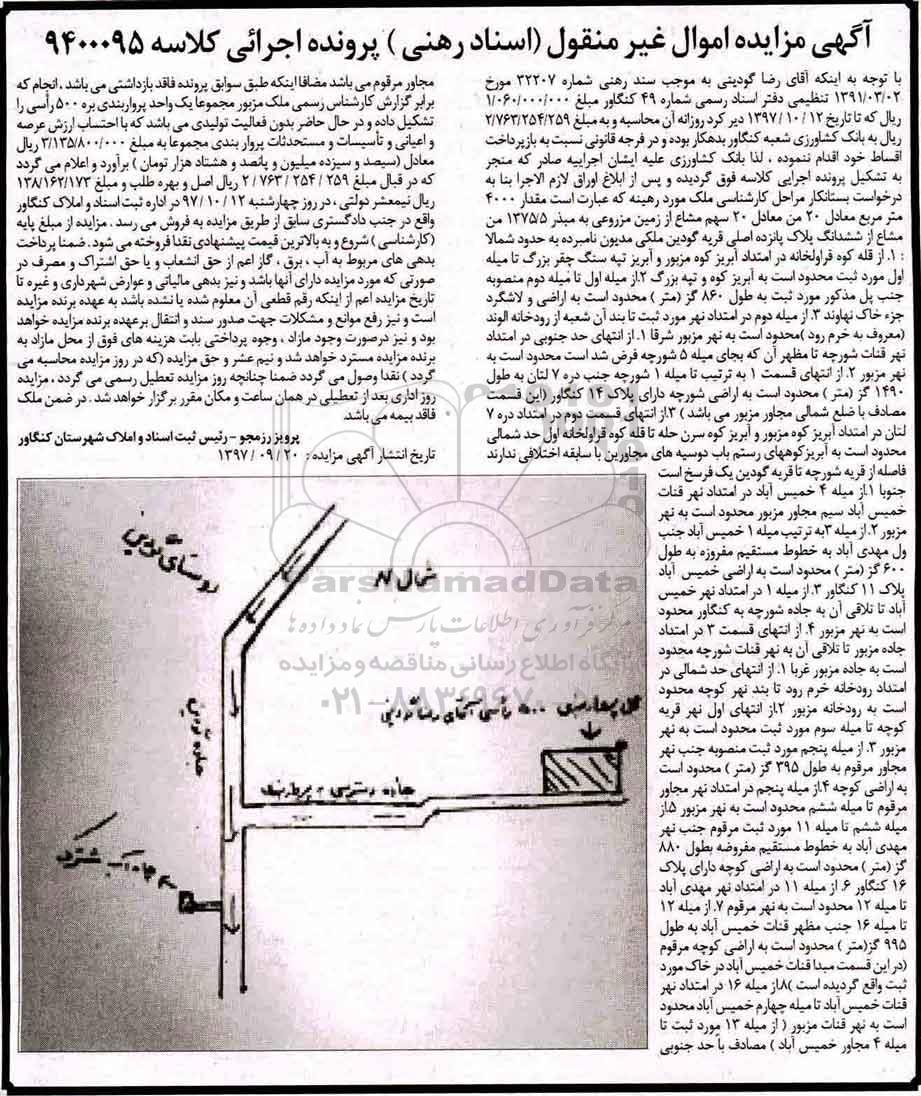 آگهی مزایده اموال غیر منقول (اسناد رهنی ) پرونده اجرائی کلاسه ۹۴۰۰۰۹۵
با توجه به اینکه آقای رضا گودینی به موجب سند رهنی شماره ۳۲۲۰۷ مورخ
۱۳۹۱/۰۳/۰۲ تنظیمی دفتر اسناد رسمی شماره ۴۹ کنگاور مبلغ ۱/۰۶۰/۰۰۰/۰۰۰
ریال که تا تاریخ ۱۲ / ۱۰ / ۱۳۹۷ دیر کرد روزانه آن محاسبه و به مبلغ ۲/۷۶۳/۲۵۴/۲۵۹
ریال به بانک کشاورزی شعبه کنگاور بدهکار بوده و در فرجه قانونی نسبت به بازپرداخت
اقساط خود اقدام ننموده ، لذا بانک کشاورزی علیه ایشان اجراییه صادر که منجر
به تشکیل پرونده اجرایی کلاسه فوق گردیده و پس از ابلاغ اوراق لازم الاجرا بنا به
درخواست بستانکار مراحل کارشناسی ملک مورد رهینه که عبارت است مقدار ۴۰۰۰
متر مربع معادل ۲۰ من معادل ۲۰ سهم مشاع از زمین مزروعی به مبذر ۱۳۷۵/۵ من
مشاع از ششدانگ پلاک پانزده اصلی قریه گودین ملکی مدیون نامبرده به حدود شمالا
: ۱. از قله کوه قراولخانه در امتداد آبریز کوه مزبور و آبریز تپه سنگ چقر بزرگ تا میله
اول مورد ثبت محدود است به آبریز کوه و تپه بزرگ ۲.از میله اول تا میله دوم منصوبه
جنب پل مذکور مورد ثبت به طول ۸۶۰ گز (متر ) محدود است به اراضی و لاشگرد
جزء خاک نهاوند ۳. از میله دوم در امتداد نهر مورد ثبت تا بند آن شعبه از رودخانه الوند
(معروف به خرم رود )محدود است به نهر مزبور شرقا ۱. از انتهای حد جنوبی در امتداد
نهر قنات شورچه تا مظهر آن که بجای میله ۵ شورچه فرض شده است محدود است به
نهر مزبور ۲. از انتهای قسمت ۱ به ترتیب تا میله ۱ شورچه جنب دره ۷ لتان به طول
۱۴۹۰ گز (متر ) محدود است به اراضی شورچه دارای پلاک ۱۴ کنگاور (این قسمت
مصادف با ضلع شمالی مجاور مزبور می باشد ) ۳.از انتهای قسمت دوم در امتداد دره ۷
لتان در امتداد آبریز کوه مزبور و آبریز کوه سرن حله تا قله کوه قراولخانه اول حد شمالی
محدود است به آبریز کوههای رستم باب دوسیه های مجاورین با سابقه اختلافی ندارند
فاصله از قریه شورچه تا قریه گودین یک فرسخ است
جنوبا ۱.از میله ۴ خمیس آباد در امتداد نهر قنات
خمیس آباد سیم مجاور مزبور محدود است به نهر
مزبور ۲. از میله ۳به ترتیب میله ۱ خمیس آباد جنب
ول مهدی آباد به خطوط مستقیم مفروزه به طول
۶۰۰ گز (متر ) محدود است به اراضی خمیس آباد
پلاک ۱۱ کنگاور ۳. از میله ۱ در امتداد نهر خمیس
آباد تا تلاقی آن به جاده شورچه به کنگاور محدود
است به نهر مزبور ۴. از انتهای قسمت ۳ در امتداد
جاده مزبور تا تلاقی آن به نهر قنات شورچه محدود
است به جاده مزبور غربا ۱. از انتهای حد شمالی در
امتداد رودخانه خرم رود تا بند نهر کوچه محدود
است به رودخانه مزبور ۲.از انتهای اول نهر قریه
کوچه تا میله سوم مورد ثبت محدود است به نهر
مزبور ۳. از میله پنجم مورد ثبت منصوبه جنب نهر
مجاور مرقوم به طول ۳۹۵ گز (متر ) محدود است
به اراضی کوچه ۴.از میله پنجم در امتداد نهر مجاور
مرقوم تا میله ششم محدود است به نهر مزبور ۵.از
میله ششم تا میله ۱۱ مورد ثبت مرقوم جنب نهر
مهدی آباد به خطوط مستقیم مفروضه بطول ۸۸۰
گز (متر ) محدود است به اراضی کوچه دارای پلاک
۱۶ کنگاور ۶. از میله ۱۱ در امتداد نهر مهدی آباد
تا میله ۱۲ محدود است به نهر مرقوم ۷. از میله ۱۲
تا میله ۱۶ جنب مظهر قنات خمیس آباد به طول
۹۹۵ گز(متر ) محدود است به اراضی کوچه مرقوم
(در این قسمت مبدا قنات خمیس آباد در خاک مورد
ثبت واقع گردیده است )۸.از میله ۱۶ در امتداد نهر
قنات خمیس آباد تا میله چهارم خمیس آباد محدود
است به نهر قنات مزبور ( از میله ۱۳ مورد ثبت تا
میله ۴ مجاور خمیس آباد ) مصادف با حد جنوبی
مجاور مرقوم می باشد مضافا اینکه طبق سوابق پرونده فاقد بازداشتی می باشد . انجام که
برابر گزارش کارشناس رسمی ملک مزبور مجموعا یک واحد پرواربندی بره ۵۰۰ رأسی را
تشکیل داده و در حال حاضر بدون فعالیت تولیدی می باشد که با احتساب ارزش عرصه
و اعیانی و تأسیسات و مستحدثات پروار بندی مجموعا به مبلغ ۳/۱۳۵/۸۰۰/۰۰۰ ریال
معادل (سیصد و سیزده میلیون و پانصد و هشتاد هزار تومان ) برآورد و اعلام می گردد
که در قبال مبلغ ۲۵۹ / ۲۵۴ / ۷۶۳ / ۲ ریال اصل و بهره طلب و مبلغ ۱۳۸/۱۶۲/۱۷۳
ریال نیمعشر دولتی ، در روز چهارشنبه ۱۲ / ۱۰ / ۹۷ در اداره ثبت اسناد و املاک کنگاور
واقع در جنب دادگستری سابق از طریق مزایده به فروش می رسد . مزایده از مبلغ پایه
(کارشناسی ) شروع و به بالاترین قیمت پیشنهادی نقدا فروخته می شود . ضمنا پرداخت
بدهی های مربوط به آب ، برق ، گاز اعم از حق انشعاب و یا حق اشتراک و مصرف در
صورتی که مورد مزایده دارای آنها باشد و نیز بدهی مالیاتی و عوارض شهرداری و غیره تا
تاریخ مزایده اعم از اینکه رقم قطعی آن معلوم شده یا نشده باشد به عهده برنده مزایده
است و نیز رفع موانع و مشکلات جهت صدور سند و انتقال برعهده برنده مزایده خواهد
بود و نیز درصورت وجود مازاد ، وجوه پرداختی بابت هزینه های فوق از محل مازاد به
برنده مزایده مسترد خواهد شد و نیم عشر و حق مزایده (که در روز مزایده محاسبه می
گردد ) نقدا وصول می گردد ضمنا چنانچه روز مزایده تعطیل رسمی می گردد ، مزایده
روز اداری بعد از تعطیلی در همان ساعت و مکان مقرر برگزار خواهد شد . در ضمن ملک
فاقد بیمه می باشد.
پرویز رزمجو - رئیس ثبت اسناد و املاک شهرستان کنگاور
تاریخ انتشار آگهی مزایده : ۲۰ / ۰۹ / ۱۳۹۷
روستای گودین
شمال N
ParsNamadData
مرکز فرآوری اطلاعات پارس نماد داده ها
پایگاه اطلاع رسانی مناقصه و مزایده
۰۲۱-۸۸۳۴۹۶۷۰
محل پرواربندی ۵۰۰ رأسی آقای رضا گودینی
جاده گودین
جاده دسترسی پرواربندی
چاه آب مشترک